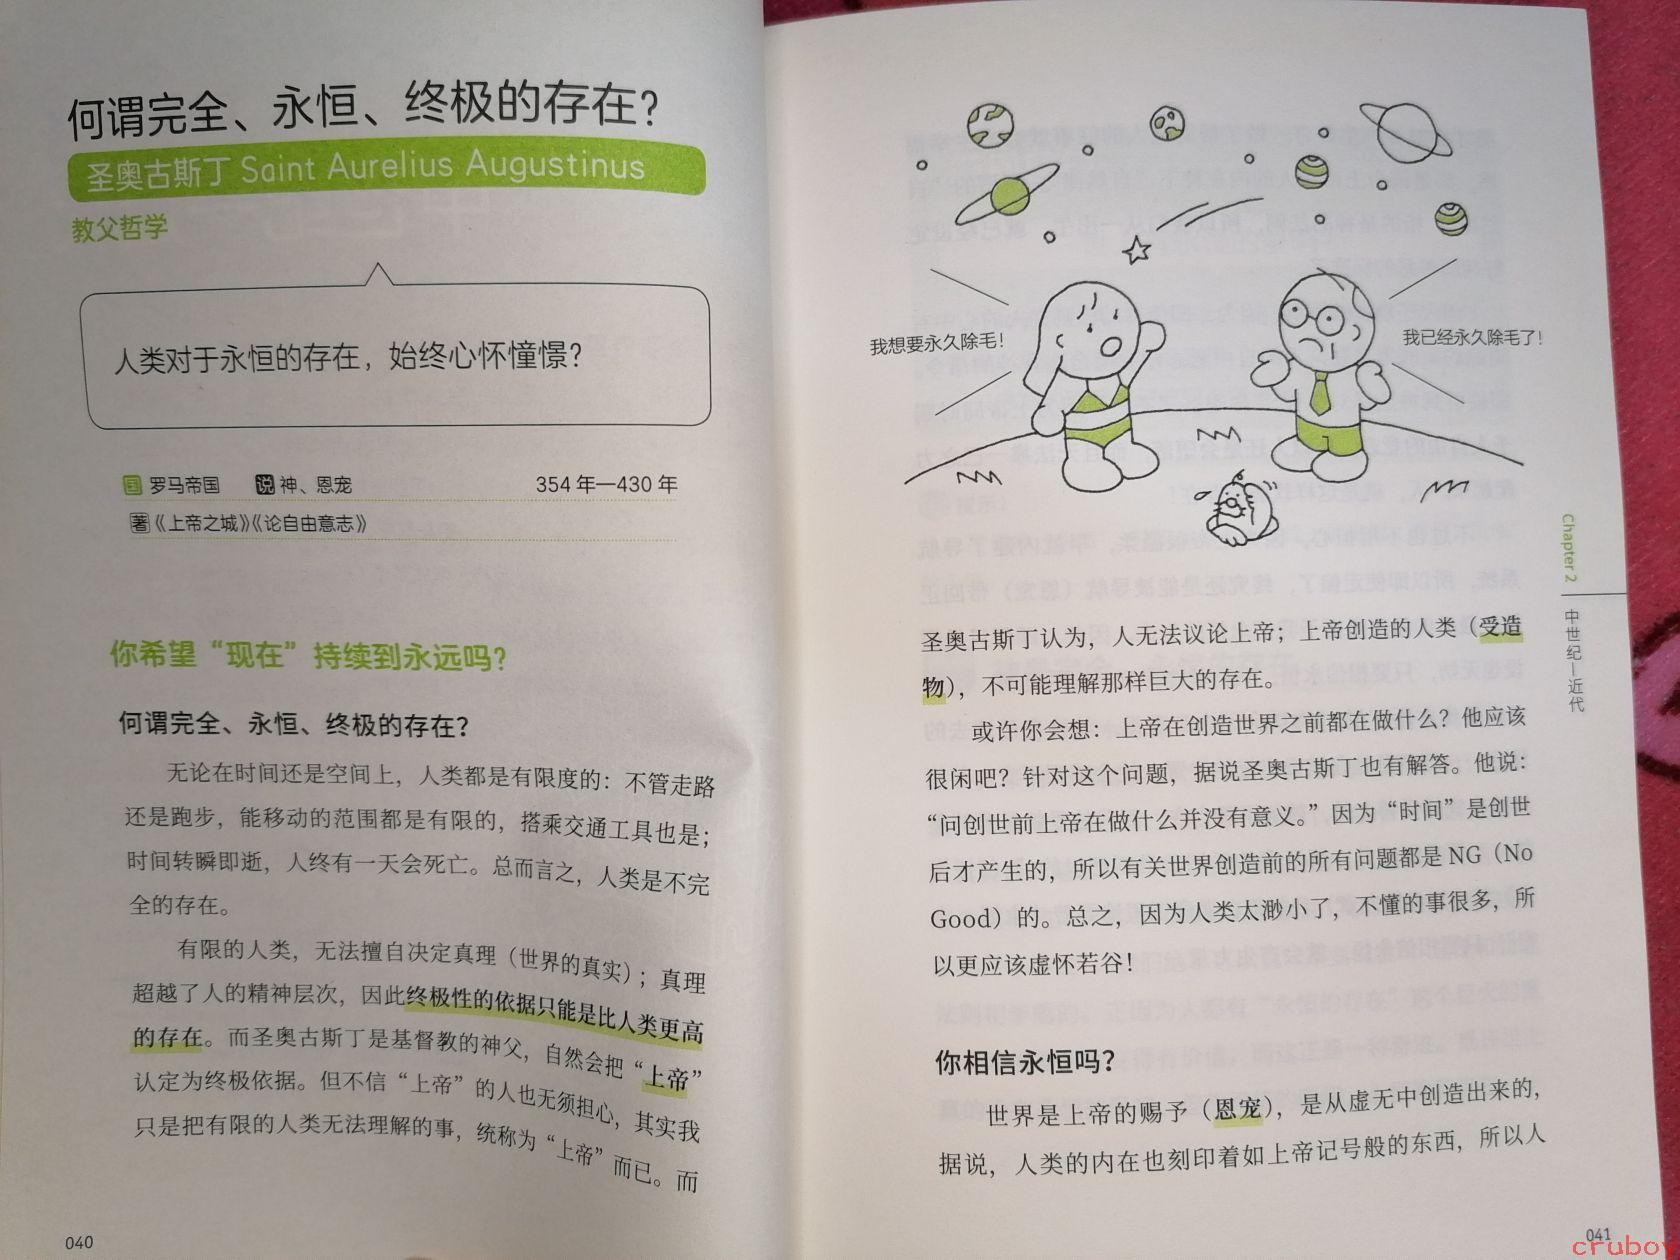 何谓完全、永恒、终极的存在？
圣奥古斯丁 Saint Aurelius Augustinus
教父哲学
人类对于永恒的存在，始终心怀憧憬？
国 罗马帝国 说 神、恩宠 354 年—430 年
著《上帝之城》《论自由意志》
你希望“现在”持续到永远吗？
何谓完全、永恒、终极的存在？
无论在时间还是空间上，人类都是有限度的：不管走路
还是跑步，能移动的范围都是有限的，搭乘交通工具也是；
时间转瞬即逝，人终有一天会死亡。总而言之，人类是不完
全的存在。
有限的人类，无法擅自决定真理（世界的真实）；真理
超越了人的精神层次，因此终极性的依据只能是比人类更高
的存在。而圣奥古斯丁是基督教的神父，自然会把“上帝”
认定为终极依据。但不信“上帝”的人也无须担心，其实我
只是把有限的人类无法理解的事，统称为“上帝”而已。而
040
我想要永久除毛！
我已经永久除毛了！
Chapter 2
中世纪—近代
圣奥古斯丁认为，人无法议论上帝；上帝创造的人类（受造
物），不可能理解那样巨大的存在。
或许你会想：上帝在创造世界之前都在做什么？他应该
很闲吧？针对这个问题，据说圣奥古斯丁也有解答。他说：
“问创世前上帝在做什么并没有意义。”因为“时间”是创世
后才产生的，所以有关世界创造前的所有问题都是 NG（No
Good）的。总之，因为人类太渺小了，不懂的事很多，所
以更应该虚怀若谷！
你相信永恒吗？
世界是上帝的赐予（恩宠），是从虚无中创造出来的，
据说，人类的内在也刻印着如上帝记号般的东西，所以人
041